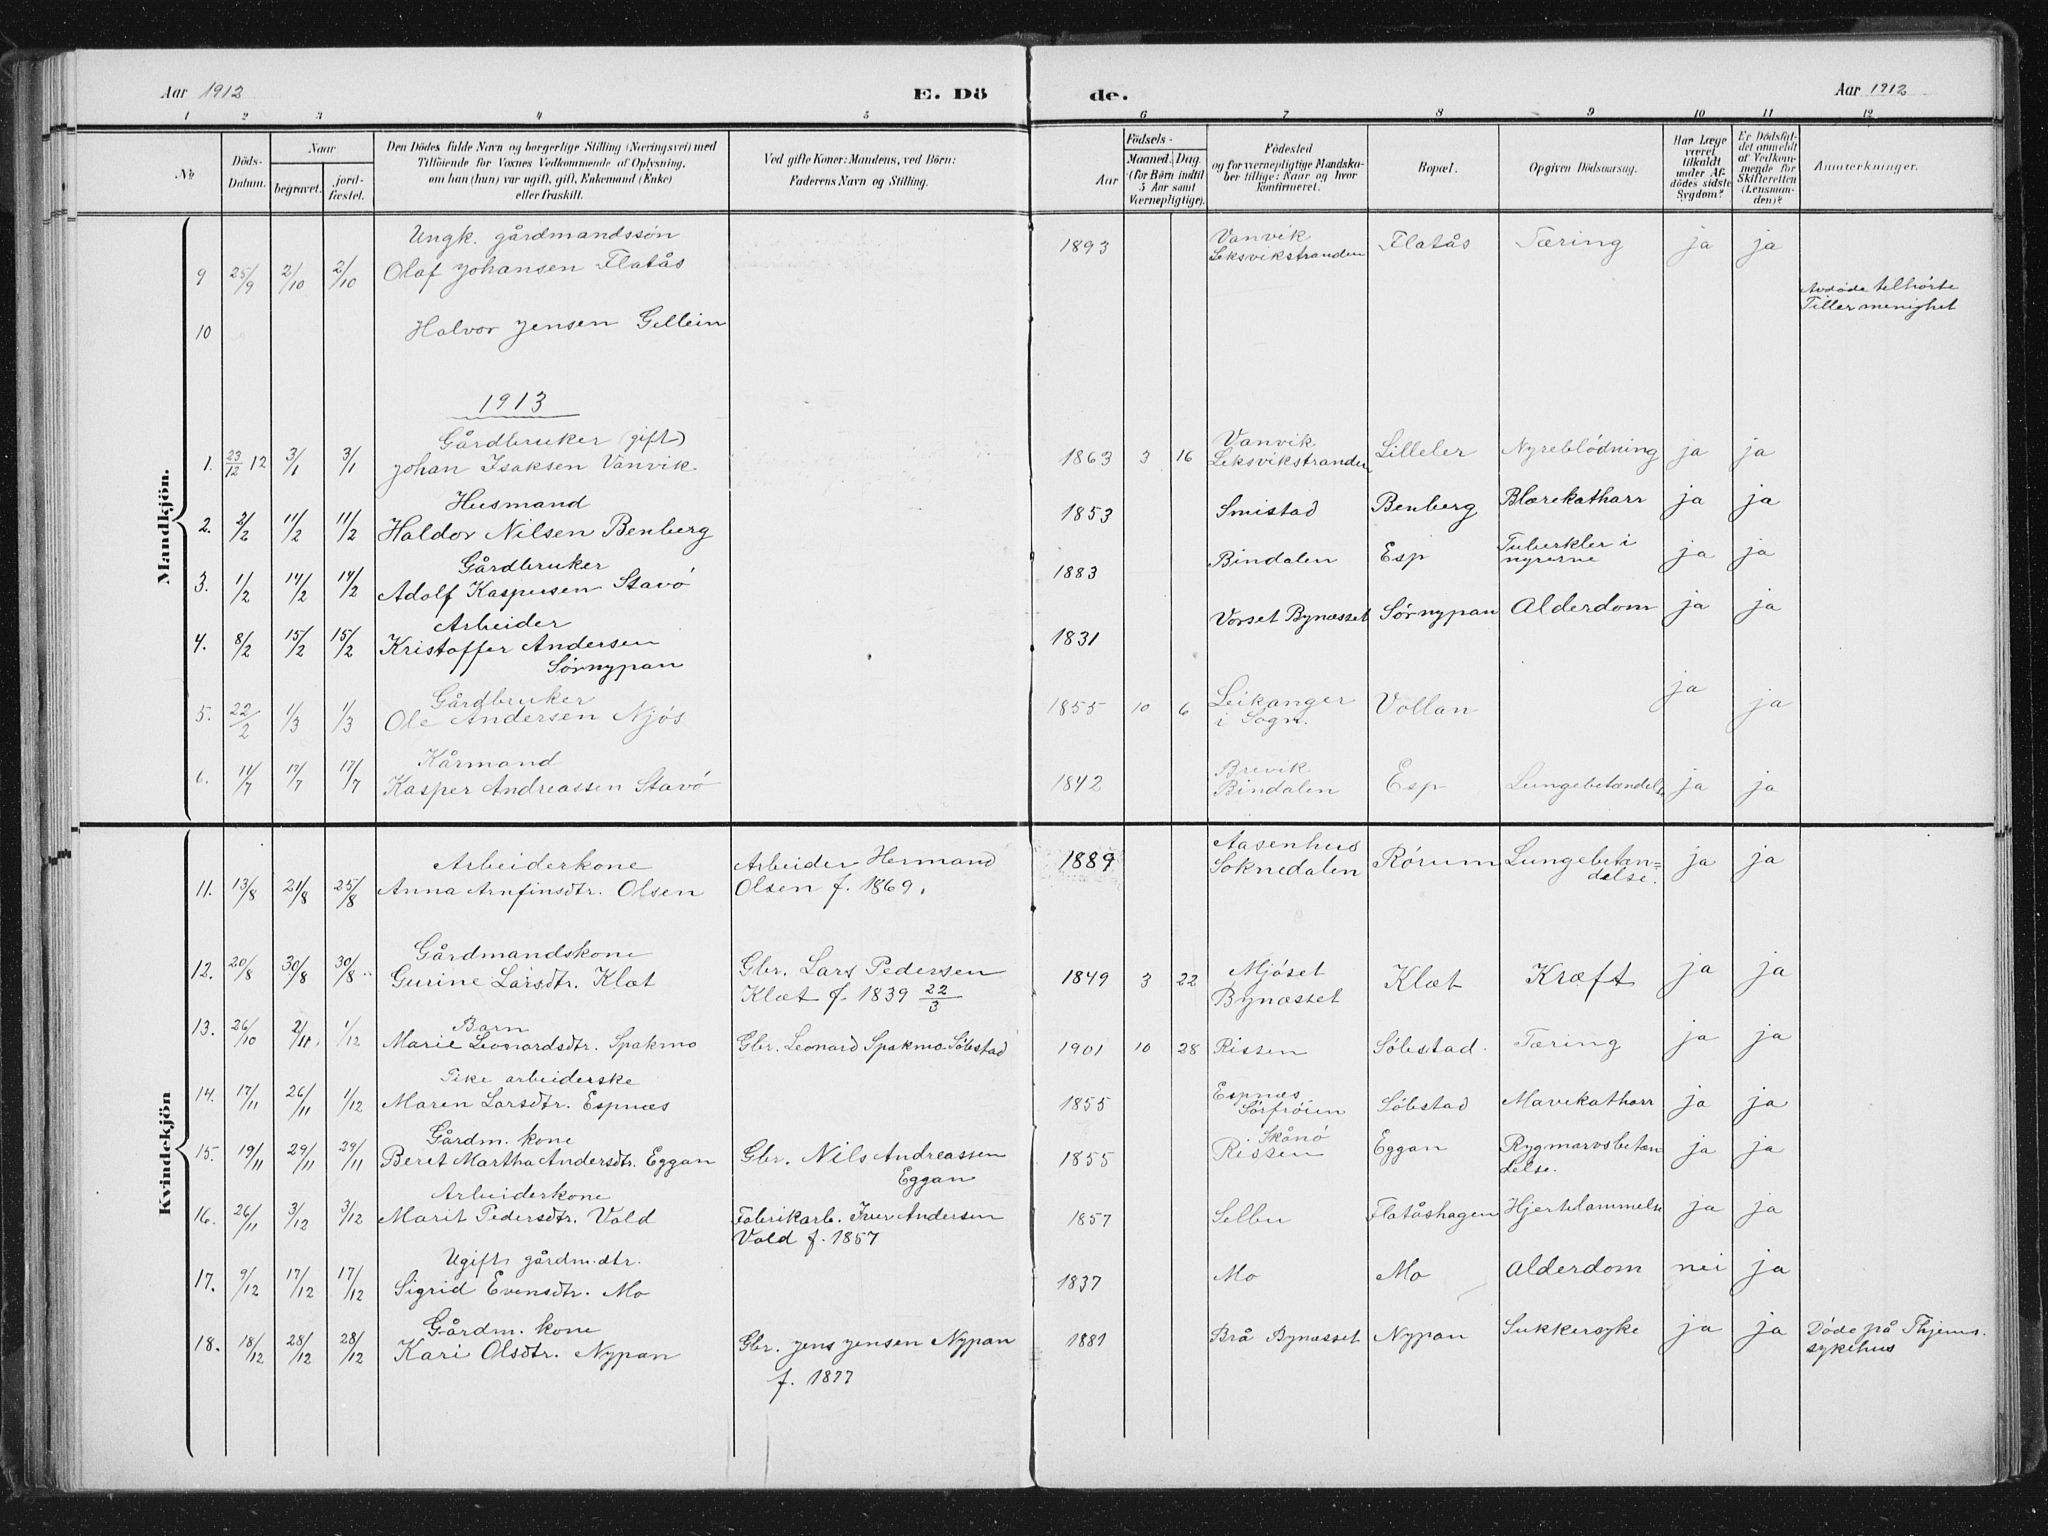 Aar 1912
E. Dö
de.
Aar 1912
1 2 3 4 5 6 7 8 9 10 11 12
No
Döds-Datum.
Naar
begravet.
jord-fæstet.
Den Dödes fulde Navn og borgerlige Stilling (Næringsvei) med
Tilföiende for Voxnes Vedkommende af Oplysning,
om han (hun) var ugift, gift, Enkemand (Enke)
eller fraskilt.
Ved gifte Koner: Mandens, ved Börn:
Faderens Navn og Stilling.
Födsels-
Aar
Maaned. Dag.
(for Börn indtil
5 Aar samt
Værnepligtige).
Födested
og for værnepligtige Mandska-
ber tillige: Naar og hvor
konfirmeret.
Bopæl.
Opgiven Dödsaarsag.
Har Læge
været
tilkaldt
under Af-
dödes sidste
Sygdom?
Er Dödsfal-
det anmeldt
af Vedkom-
mende for
Skifteretten
(Lensman-
den)?
Anmærkninger.
Mandkjön.
Ungk. gårdmandssön
9 25/9 2/10 2/10 Olaf Johansen Flatås 1893 Vanvik Leksvikstranden Flatås Tæring ja ja
Avdøde tilhørte
Tiller menighet
10 Halvor Jensen Gellein
1913
Gårdbruker (gift)
1. 23/12 12 3/1 3/1 Johan Isaksen Vanvik 1863 3 16 Vanvik Leksvikstranden Lilleler Nyreblödning ja ja
Husmand
2. 2/2 11/2 11/2 Haldor Nilsen Benberg 1853 Smistad Benberg Blærekatharr ja ja
Gårdbruker
3. 1/2 14/2 14/2 Adolf Kaspersen Stavö 1883 Bindalen Esp Tuberkler i nyrerne ja ja
Arbeider
4. 8/2 15/2 15/2 Kristoffer Andersen 1831 Vorset Bynæsset Sörnypan Alderdom ja ja
Sörnypan
Gårdbruker
5. 22/2 1/3 1/3 Ole Andersen Njös 1855 10 6 Leikanger i Sogn. Vollan ja ja
Kårmand
6. 11/7 17/7 17/7 Kasper Andreassen Stavö 1842 Brevik Bindalen Esp Lungebetændelse ja ja
Kvindekjön
Arbeiderkone Arbeider Hermand
11. 13/8 21/8 25/8 Anna Arnfinsdtr. Olsen Olsen f. 1869. 1889 Aasenhus Soknedalen Rörum Lungebetæn=delse. ja ja
Gårdmandskone
12. 20/8 30/8 30/8 Gurine Larsdtr. Klæt Gbr. Lars Pedersen 1849 3 22 Mjöset Bynæsset Klæt Kræft ja ja
Klæt f. 1839 22/3
Barn
13. 26/10 2/11 1/12 Marie Leonardsdtr. Spakmo Gbr. Leonard Spakmo-Söbstad 1901 10 28 Rissen Söbstad. Tæring ja ja
Pike arbeiderske
14. 17/11 26/11 1/12 Maren Larsdtr. Espnæs 1855 Espnæs Sörfröien Söbstad Mavekatharr ja ja
Gårdm. kone
15. 19/11 29/11 29/11 Beret Martha Andersdtr. Eggan Gbr. Nils Andreassen 1855 Skånö Rissen Eggan Rygmarvsbetæn delse. ja ja
Eggan
Arbeiderkone
16. 26/11 3/12 3/12 Marit Pedersdtr. Vold Fabrikarb. Iver Andersen 1857 Selbu Flatåshagen Hjertelammelse ja ja
Vold f. 1857
Ugift gårdm.dtr.
17. 9/12 17/12 17/12 Sigrid Evensdtr. Mo 1837 Mo Mo Alderdom nei ja
Gårdm. kone
18. 18/12 28/12 28/12 Kari Olsdtr. Nypan Gbr. Jens Jensen Nypan 1881 Brå Bynæsset Nypan Sukkersyke ja ja Döde på Thjems.
f. 1877 sykehus